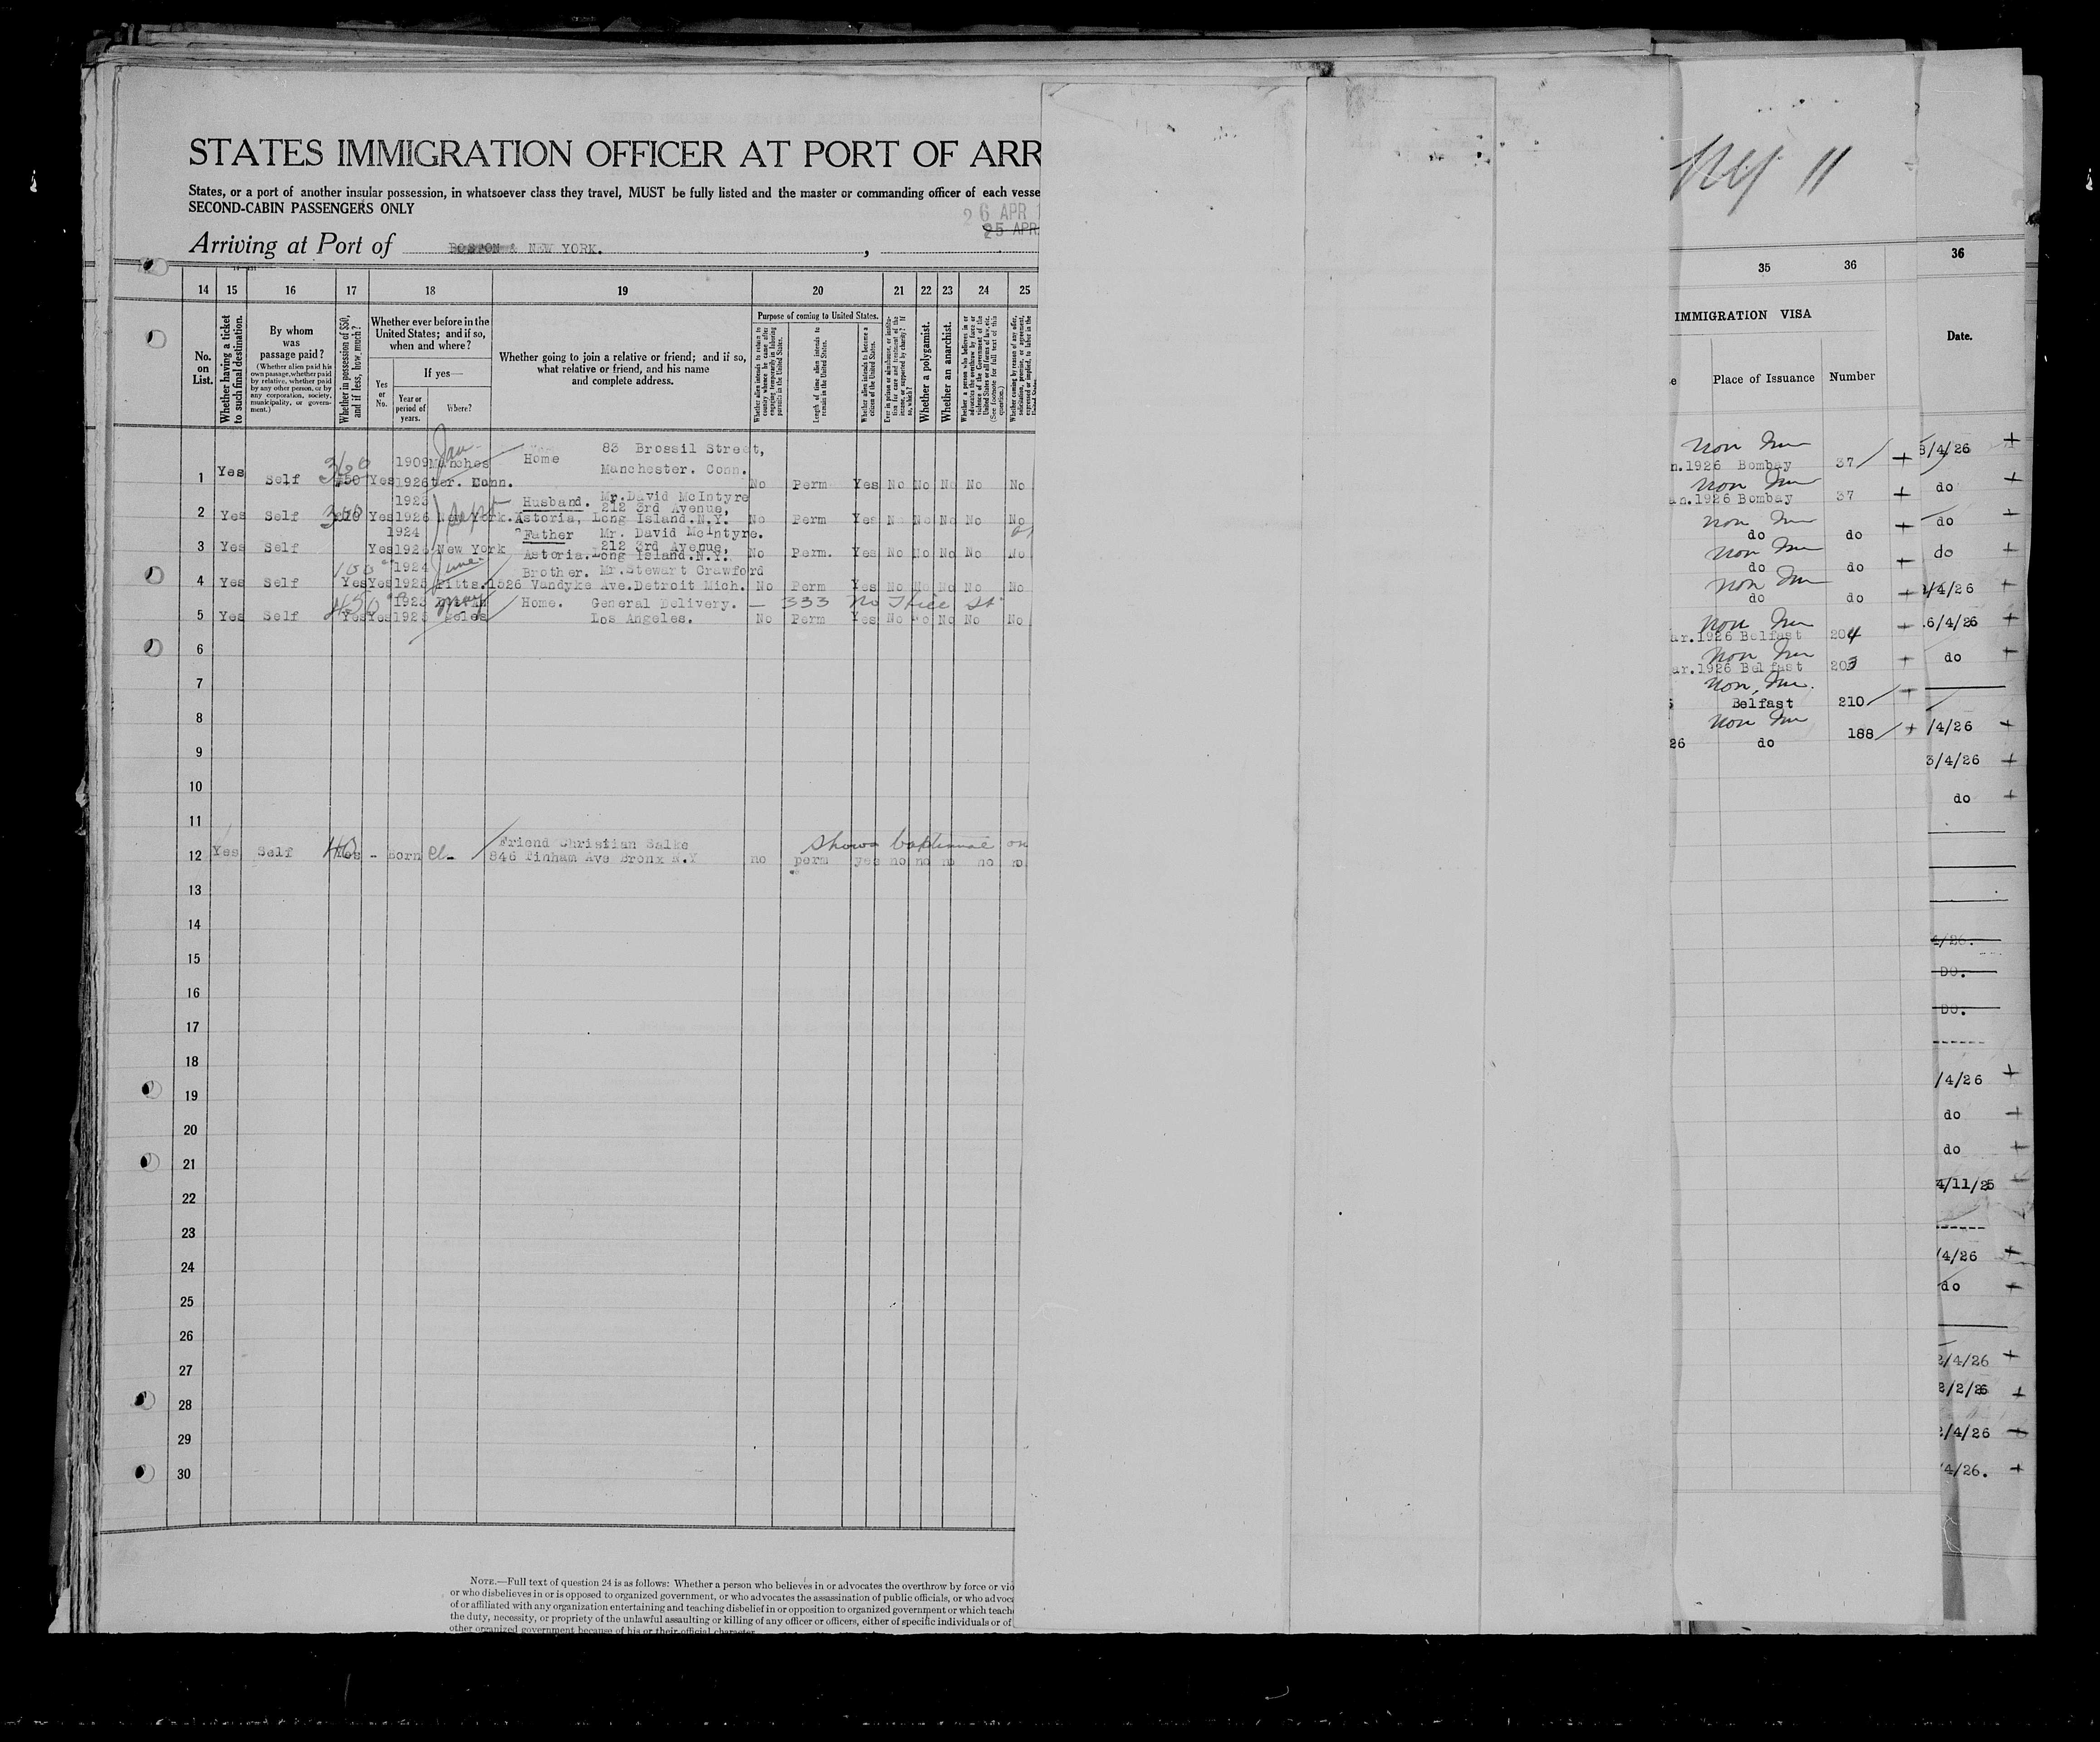 STATES IMMIGRATION OFFICER AT PORT OF ARR
States, or a port of another insular possession, in whatsoever class they travel, MUST be fully listed and the master or commanding officer of each vesse
SECOND-CABIN PASSENGERS ONLY
26 APR
25 APR
Arriving at Port of BOSTON & NEW YORK.
14 15 16 17 18 19 20 21 22 23 24 25
No. on List.
Whether having a ticket to such final destination.
By whom was passage paid?
(Whether alien paid his own passage, whether paid by relative, whether paid by any other person, or by any corporation, society, municipality, or government.)
Whether in possession of $50, and if less, how much?
Whether ever before in the United States; and if so, when and where?
Yes or No.
If yes—
Year or period of years.
Where?
Whether going to join a relative or friend; and if so, what relative or friend, and his name and complete address.
Purpose of coming to United States.
Whether alien intends to return to country whence he came after engaging temporarily in laboring pursuits in the United States.
Length of time alien intends to remain in the United States.
Whether alien intends to become a citizen of the United States.
Whether a polygamist.
Whether an anarchist.
Home 83 Brossil Street,
1909 Manches
Manchester. Conn.
1 Yes Self $50 Yes 1926 ter. Conn. No Perm Yes No No No No No
1923 Husband. Mr.David McIntyre
212 3rd Avenue,
2 Yes Self Yes 1926 New York. Astoria, Long Island.N.Y. No Perm Yes No No No No No
1924 Father Mr. David McIntyre.
212 3rd Avenue,
3 Yes Self Yes 1925 New York Astoria. Long Island.N.Y. No Perm. Yes No No No No No
100 1924 June Brother. Mr.Stewart Crawford
4 Yes Self Yes Yes 1925 Pitts. 1526 Vandyke Ave.Detroit Mich. No Perm Yes No No No No No
450 1923 May Home. General Delivery. — 333 No Hill St
5 Yes Self Yes Yes 1925 geles Los Angeles. No Perm Yes No No No No No
6
7
8
9
10
11
Friend Christian Salke shows baptismal
12 Yes Self Yes - Born 846 Tinham Ave Bronx N.Y no perm yes no no no no no
13
14
15
16
17
18
19
20
21
22
23
24
25
26
27
28
29
30
NOTE.—Full text of question 24 is as follows: Whether a person who believes in or advocates the overthrow by force or vio
or who disbelieves in or is opposed to organized government, or who advocates the assassination of public officials, or who advoc
of or affiliated with any organization entertaining and teaching disbelief in or opposition to organized government or which teach
the duty, necessity, or propriety of the unlawful assaulting or killing of any officer or officers, either of specific individuals or of
other organized government because of his or their official character
11
35 36
IMMIGRATION VISA
Place of Issuance Number
non Im
n.1926 Bombay 37
non Im
an.1926 Bombay 37
non Im
do do
non Im
do do
non Im
do do
non Im
ar.1926 Belfast 204
non Im
ar.1926 Belfast 203
non Im.
Belfast 210
non Im
26 do 188
36
Date.
3/4/26 +
do +
do +
do +
/4/26 +
6/4/26 +
do +
/4/26 +
3/4/26 +
do +
4/26.
DO.
DO.
/4/26 +
do +
do +
4/11/25 +
/4/26 +
do +
2/4/26 +
2/2/26 +
2/4/26 +
/4/26. +